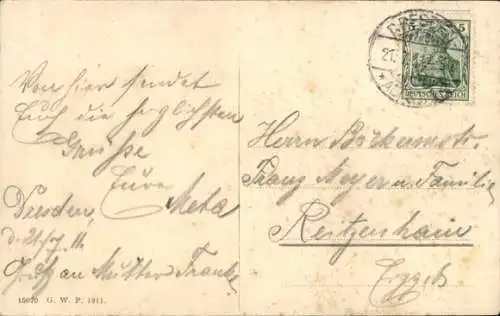 Von hier sendet
Euch die herzlichsten
Grüße
Eure
Meta
Dresden,
d. 21./7. 11.
Gruß an Mutter u. Franke
15070 G. W. P. 1911.
DRESDEN
21.
5
DEUTSCHES REICH
Herrn Bäckermstr.
Franz Meyer u. Familie
Reitzenhain
Erzgeb